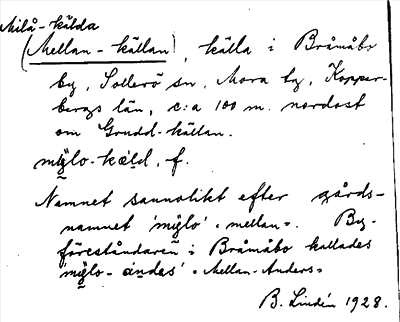 Milå-kälda
(Mellan-källan), källa i Bråmåbo
by, Sollerö sn, Mora tg, Kopper-
bergs län, c:a 100 m. nordost
om Grudd-källan.
mylo-kæld, f.
Namnet sannolikt efter gårds-
namnet 'mylo' "mellan". By-
föreståndaren i Bråmåbo kallades
'mylo-åndas' "Mellan-Anders"
B. Lindén 1928.